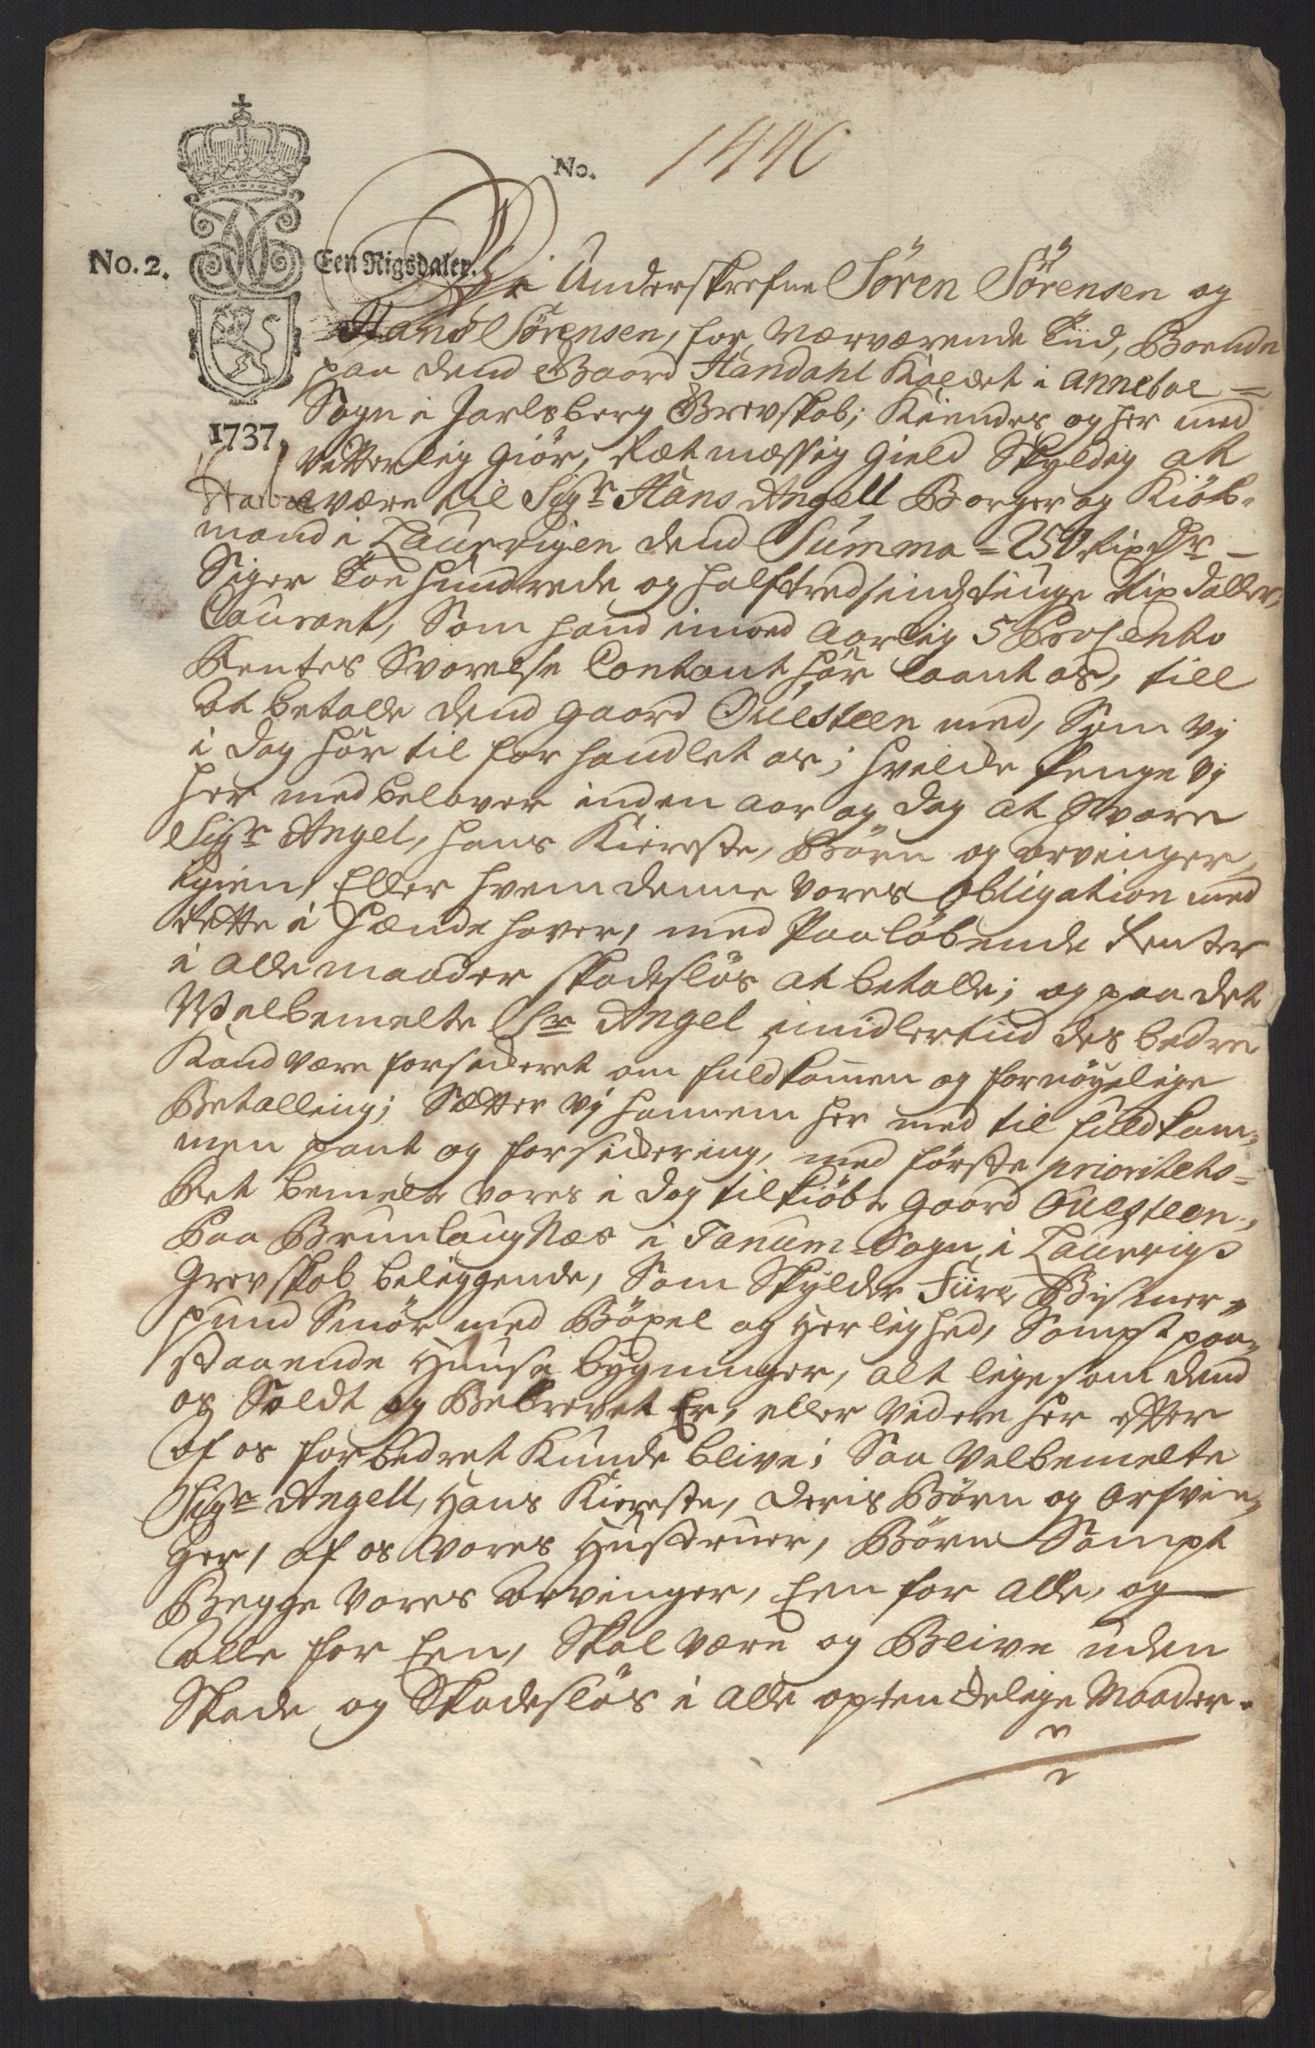 No. 1440
No. 2. Een Rigsdaler.
1737.
Vi Underskrefne Sören Sörensen og
Hans Sörensen, for Nærværende Tiid, Boende
paa dend Gaard Handahl Kaldet i Anneboe
Sogn i Jarlsberg Grevskab; Kiendes og her med
Vitterlig Giör, Ræt mæssig Gield Skyldig at
være til Sigr Hans Angell Borger og Kiöb-
mand i Laurvigen dend Summa = 250 Rixdr
Siger Toe hundrede og halftredsindstiuge Rixdaller
Courant, Som hand imod Aarlig 5 Procento
Rentes Svarelse Contant hâr Laant os, till
At betalle dend gaard Oulsteen med, Som vj
i Dag hâr til for handlet os; hvilcke Penge vj
her med belover inden Aar og Dag at Svare
Sigr Angel, hans Kiereste, Börn og arvinger
igien, Eller hvem denne vores Obligation med
rette i hænde haver, med Paalöbende Renter
i alle maader skadeslös at betalle; og paa det
Velbemelte Sr Angel imidlertiid des bedre
Kand være forsickret om fuldkommen og fornöyelige
Betalling; Sætter vj hannem her med til fuldkom-
men pant og forsickering, med förste prioritets-
Ret bemelte vores i Dag tilkiöbte gaard Oulsteen,
Paa Brunlaugnæs i Tanum Sogn i Laurvigs
Grevskab beliggende, Som Skylder Fiire Bismer-
pund Smör med Böxel og Herlighed, Sampt paa-
staaende Huuse bygninger, alt lige som dend
os Soldt og Bebrevet Er, eller videre her efter
af os forbedret Kunde blive; Saa Velbemelte
Sigr Angell, Hans Kiereste, deris Börn og Arfvin-
ger, af os vores Hustruer, Börn Sampt
Begge vores Arvinger, Een for alle, og
alle for Een, Skal være og Blive uden
Skade og Skadeslös i alle optenckelige Maader.